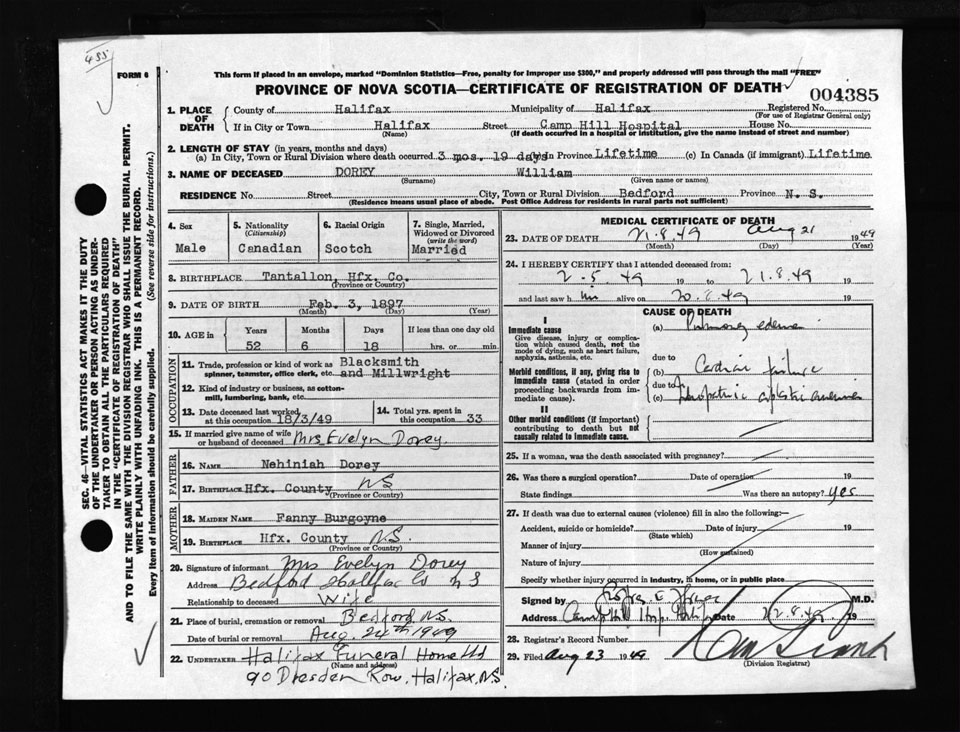 455
FORM 6
This form if placed in an envelope, marked "Dominion Statistics—Free, penalty for improper use $300," and properly addressed will pass through the mail "FREE"
PROVINCE OF NOVA SCOTIA—CERTIFICATE OF REGISTRATION OF DEATH
004385
1. PLACE OF DEATH
County of Halifax Municipality of Halifax Registered No.
(For use of Registrar General only)
If in City or Town Halifax Street Camp Hill Hospital House No.
(Name) (If death occurred in a hospital or institution, give the name instead of street and number)
2. LENGTH OF STAY (in years, months and days)
(a) In City, Town or Rural Division where death occurred 3 mos. 19 days (b) in Province Lifetime (c) In Canada (if immigrant) Lifetime
3. NAME OF DECEASED DOREY William
(Surname) (Given name or names)
RESIDENCE No. Street City, Town or Rural Division Bedford Province N. S.
(Residence means usual place of abode. Post Office Address for residents in rural parts not sufficient)
4. Sex
Male
5. Nationality
(Citizenship)
Canadian
6. Racial Origin
Scotch
7. Single, Married, Widowed or Divorced
(write the word)
Married
8. BIRTHPLACE Tantallon, Hfx. Co.
(Province or Country)
9. DATE OF BIRTH Feb. 3, 1897
(Month) (Day) (Year)
10. AGE in Years Months Days If less than one day old
52 6 18 hrs. or min.
OCCUPATION
11. Trade, profession or kind of work as Blacksmith
spinner, teamster, office clerk, etc. and Millwright
12. Kind of industry or business, as cotton-
mill, lumbering, bank, etc.
13. Date deceased last worked
at this occupation 18/3/49
14. Total yrs. spent in
this occupation 33
15. If married give name of wife
or husband of deceased Mrs Evelyn Dorey.
FATHER
16. NAME Nehiniah Dorey
17. BIRTHPLACE Hfx. County NS
(Province or Country)
MOTHER
18. MAIDEN NAME Fanny Burgoyne
19. BIRTHPLACE Hfx. County N.S.
(Province or Country)
20. Signature of informant Mrs Evelyn Dorey
Address Bedford Halifax Co N S
Relationship to deceased Wife
21. Place of burial, cremation or removal Bedford, N.S.
Date of burial or removal Aug. 24th 1949
22. UNDERTAKER Halifax Funeral Home Ltd
(Name and address)
90 Dresden Row, Halifax, N.S.
MEDICAL CERTIFICATE OF DEATH
23. DATE OF DEATH 21.8.49 Aug 21 1949
(Month) (Day) (Year)
24. I HEREBY CERTIFY that I attended deceased from:
2.5.49 19 to 21.8.49 19
and last saw him alive on 20.8.49 19
CAUSE OF DEATH
I
Immediate cause
Give disease, injury or complication which caused death, not the mode of dying, such as heart failure, asphyxia, asthenia, etc.
(a) Pulmonary edema
due to
Morbid conditions, if any, giving rise to immediate cause (stated in order proceeding backwards from immediate cause).
(b) Cardiac failure
due to
(c) Idiopathic aplastic anaemia
II
Other morbid conditions (if important) contributing to death but not causally related to immediate cause.
25. If a woman, was the death associated with pregnancy?
26. Was there a surgical operation? Date of operation 19
State findings Was there an autopsy? Yes
27. If death was due to external causes (violence) fill in also the following:—
Accident, suicide or homicide? Date of injury 19
(State which)
Manner of injury
(How sustained)
Nature of injury
Specify whether injury occurred in industry, in home, or in public place
Signed by M.D.
Address Camp Hill Hosp. Date 22.8.49 19
28. Registrar's Record Number
29. Filed Aug 23 1949
(Division Registrar)
SEC. 46—VITAL STATISTICS ACT MAKES IT THE DUTY
OF THE UNDERTAKER OR PERSON ACTING AS UNDER-
TAKER TO OBTAIN ALL THE PARTICULARS REQUIRED
IN THE "CERTIFICATE OF REGISTRATION OF DEATH"
AND TO FILE THE SAME WITH THE DIVISION REGISTRAR WHO SHALL ISSUE THE BURIAL PERMIT.
WRITE PLAINLY WITH UNFADING INK. THIS IS A PERMANENT RECORD.
Every item of information should be carefully supplied. (See reverse side for instructions.)